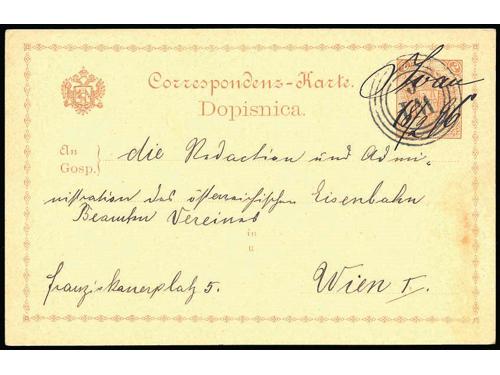 Correspondenz-Karte.
Dopisnica.
An
Gosp.
die Redaction und Admi-
nistration des österreichischen Eisenbahn
Beamten Vereines
in
u
franziskanerplatz 5.
Wien I.